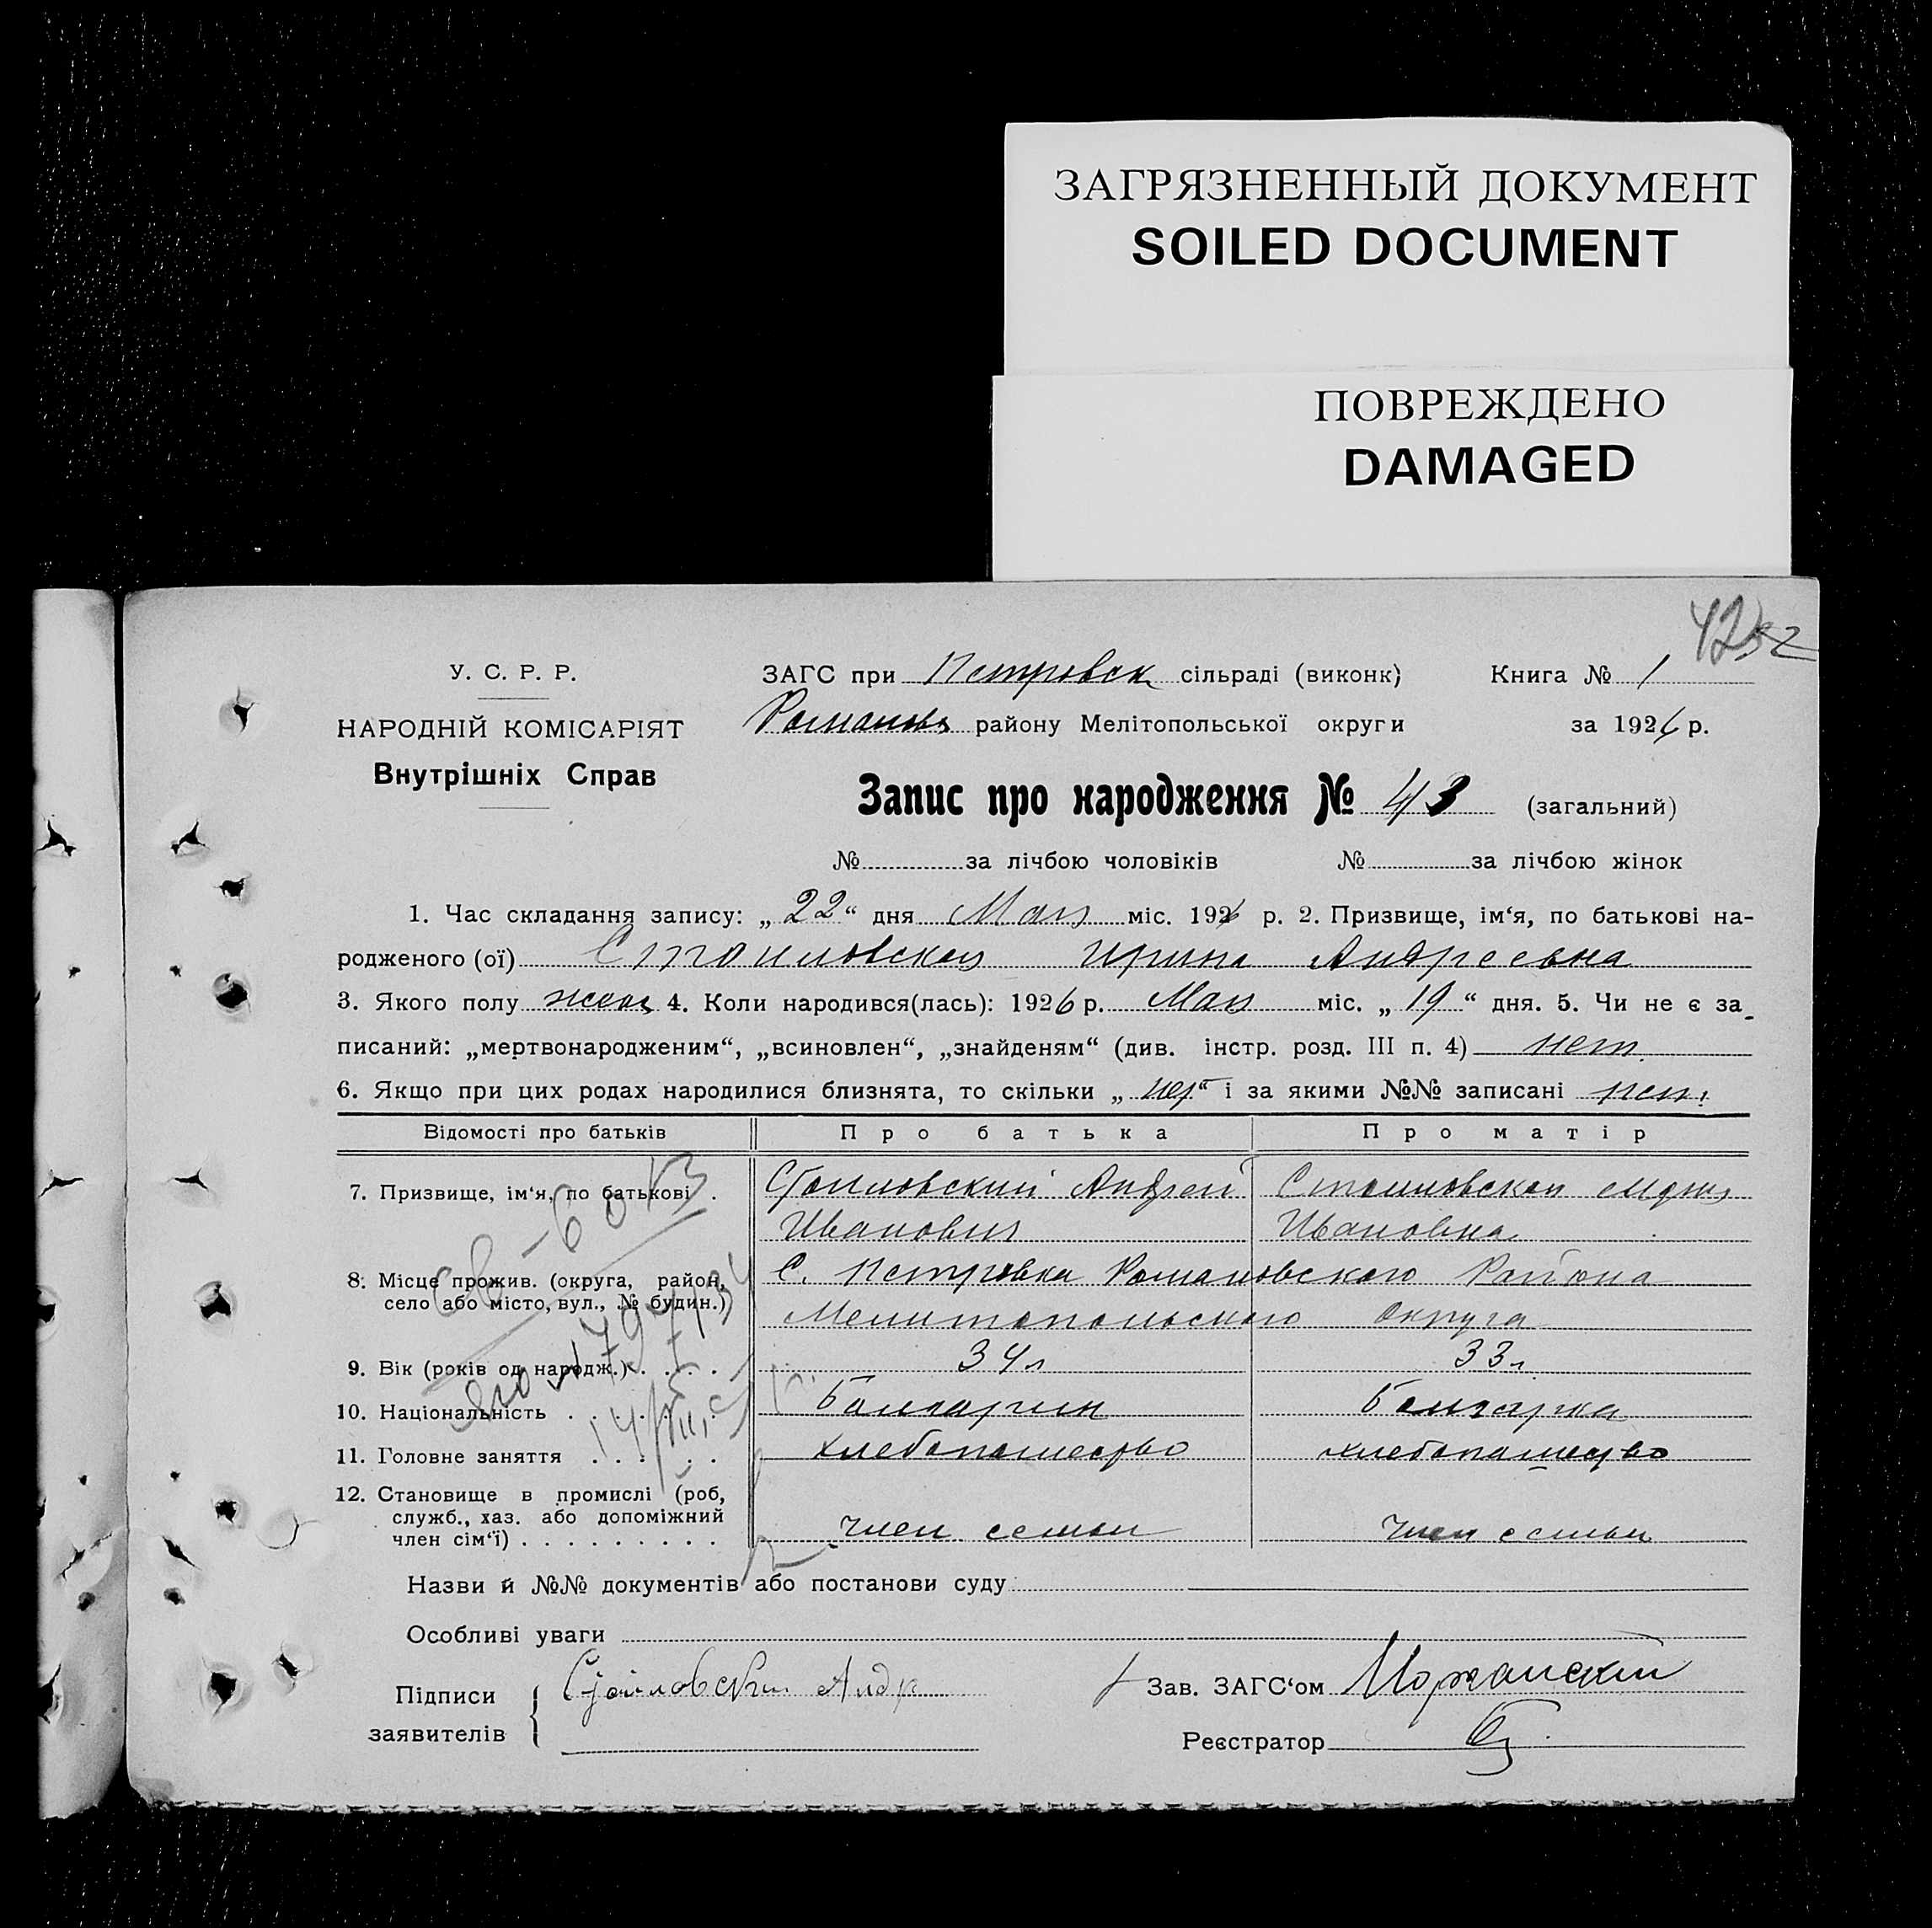 ЗАГРЯЗНЕННЫЙ ДОКУМЕНТ
SOILED DOCUMENT
ПОВРЕЖДЕНО
DAMAGED
У. С. Р. Р.
НАРОДНІЙ КОМІСАРІЯТ
Внутрішніх Справ
ЗАГС при Петровск сільраді (виконк) Книга № 1
Романовк району Мелітопольської округи за 1926 р.
Запис про народження № 43 (загальний)
№ за лічбою чоловіків № за лічбою жінок
1. Час складання запису: „22“ дня Мая міс. 1926 р. 2. Призвище, ім‘я, по батькові на-
родженого (ої) Стоиловская Ирина Андреевна
3. Якого полу женс 4. Коли народився(лась): 1926 р. Мая міс. „19“ дня. 5. Чи не є за-
писаний: „мертвонародженим“, „всиновлен“, „знайденям“ (див. інстр. розд. III п. 4) нет.
6. Якщо при цих родах народилися близнята, то скільки „нет“ і за якими №№ записані нет.
Відомості про батьків Про батька Про матір
7. Призвище, ім‘я, по батькові . Стоиловский Андрей Стоиловская
Иванович Ивановна
8. Місце прожив. (округа, район, село або місто, вул., № будин.) С. Петровка Романовского Района
Мелитопольского Округа
9. Вік (років од народж.) . . . . 34 л 33 л
10. Національність . . . . . . Болгарин Болгарка
11. Головне заняття . . . . . . хлебопашество хлебопашество
12. Становище в промислі (роб,
служб., хаз. або допоміжний
член сім‘ї) . . . . . . . . . член семьи член семьи
Назви й №№ документів або постанови суду
Особливі уваги
Підписи
заявителів
Стоиловский Андр
Зав. ЗАГС‘ом
Реєстратор